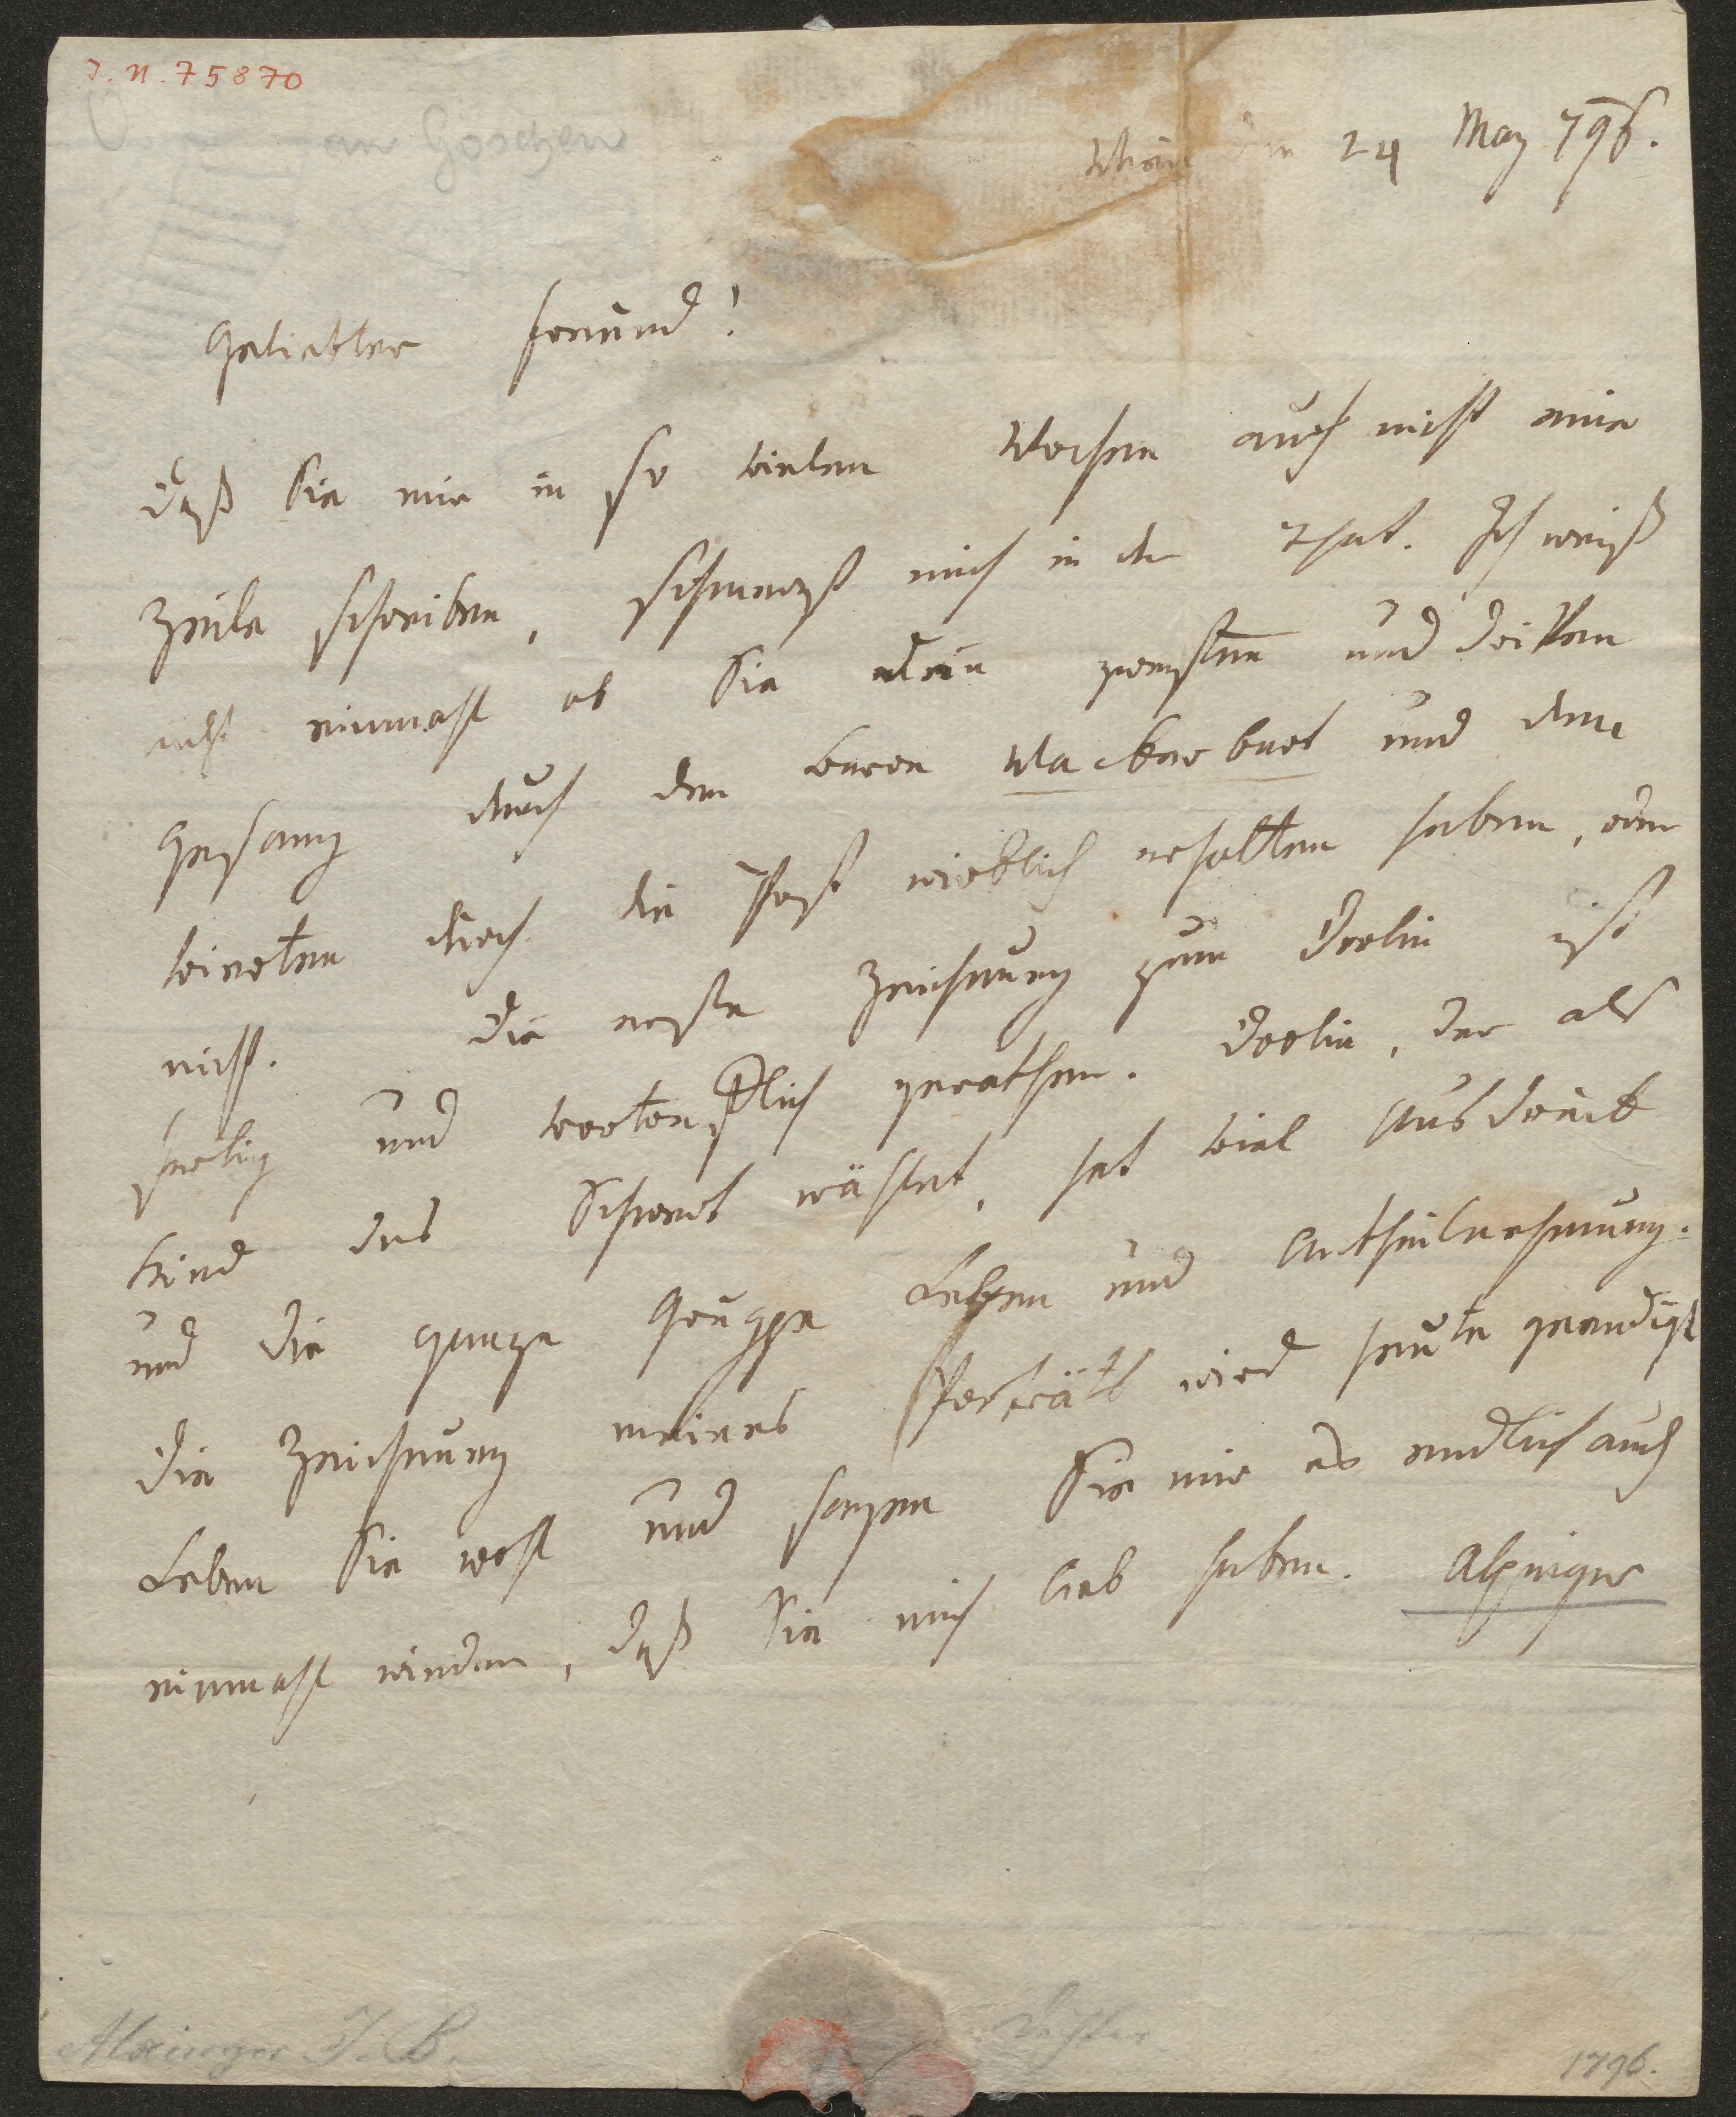 I. N. 75870
an Göschen
Wien den 24 May 796.
Geliebter Freund!
Daß Sie mir in so vielen Wochen auch nicht eine
Zeile schreiben, schmerzt mich in der That. Ich weiß
nicht einmahl ob Sie den zweyten und dritten
Gesang durch den Baron Wackerbart und den
vierten durch die Post wirklich erhalten haben, oder
nicht. Die erste Zeichnung zum Doolin ist
fertig und vortrefflich gerathen. Doolin, der als
Kind das Schwert wählet, hat viel Ausdruck
und die ganze Gruppe Leben und Antheilnehmung.
Die Zeichnung meines Porträts wird heute geendigt
Leben Sie wohl und sagen Sie mir es endlich auch
einmahl wieder, daß Sie mich lieb haben. Alxinger
Alxinger J. B.
Dichter
1796.